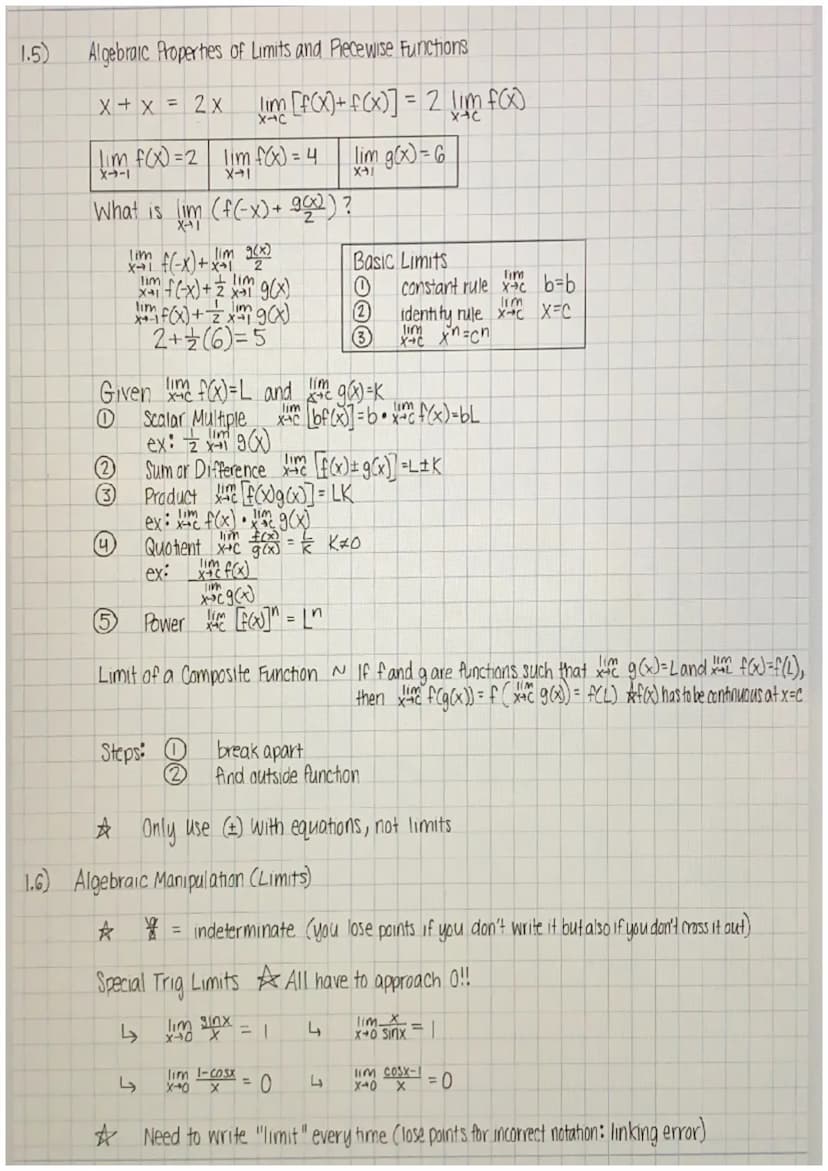 1.5) Algebraic Properties of Limits and Piecewise Functions
x + x = 2x lim x→c [f(x)+f(x)] = 2 lim x→c f(x)
lim x→-1 f(x)=2 lim x→1 f(x)=4 lim x→1 g(x)=6
What is lim x→1 (f(-x)+ g(x)/2)?
lim x→1 f(-x)+lim x→1 g(x)/2
lim x→1 f(-x)+1/2 lim x→1 g(x)
lim x→-1 f(x)+1/2 lim x→1 g(x)
2+1/2(6)=5
Basic Limits
① constant rule lim x→c b=b
② identity rule lim x→c x=c
③ lim x→c xⁿ=cⁿ
Given lim x→c f(x)=L and lim x→c g(x)=K
① Scalar Multiple lim x→c [bf(x)]=b•lim x→c f(x)=bL
ex: 1/2 lim x→1 g(x)
② Sum or Difference lim x→c [f(x)±g(x)]=L±K
③ Product lim x→c [f(x)g(x)]=LK
ex: lim x→c f(x)•lim x→c g(x)
④ Quotient lim x→c f(x)/g(x) = L/K K≠0
ex: lim x→c f(x)
lim x→c g(x)
⑤ Power lim x→c [f(x)]ⁿ = Lⁿ
Limit of a Composite Function ~ If f and g are functions such that lim x→c g(x)=L and lim x→L f(x)=f(L),
then lim x→c f(g(x))=f(lim x→c g(x))=f(L) ☆f(x) has to be continuous at x=c
Steps: ① break apart
② find outside function
☆ Only use (±) with equations, not limits
1.6) Algebraic Manipulation (Limits)
☆ 0/0 = indeterminate (you lose points if you don't write it but also if you don't cross it out)
Special Trig Limits ☆ All have to approach 0!!
↳ lim x→0 sinx/x = 1 ↳ lim x→0 x/sinx = 1
↳ lim x→0 1-cosx/x = 0 ↳ lim x→0 cosx-1/x = 0
☆ Need to write "limit" every time (lose points for incorrect notation: linking error)